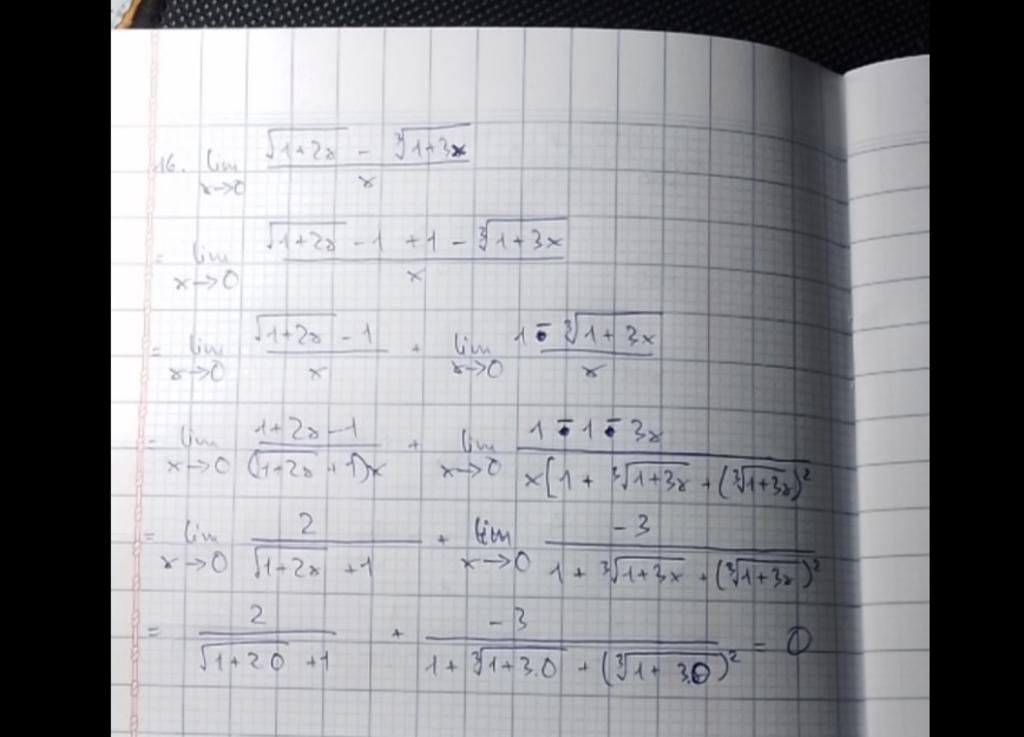 16. lim x→0 (√(1+2x) - ∛(1+3x)) / x
= lim x→0 (√(1+2x) - 1 + 1 - ∛(1+3x)) / x
= lim x→0 (√(1+2x) - 1) / x + lim x→0 (1 - ∛(1+3x)) / x
= lim x→0 (1+2x-1) / ((√(1+2x) + 1)x) + lim x→0 (1 - 1 - 3x) / (x[1 + ∛(1+3x) + (∛(1+3x))²
= lim x→0 2 / (√(1+2x) + 1) + lim x→0 -3 / (1 + ∛(1+3x) + (∛(1+3x))²)
= 2 / (√(1+2.0) + 1) + -3 / (1 + ∛(1+3.0) + (∛(1+3.0))²) = 0